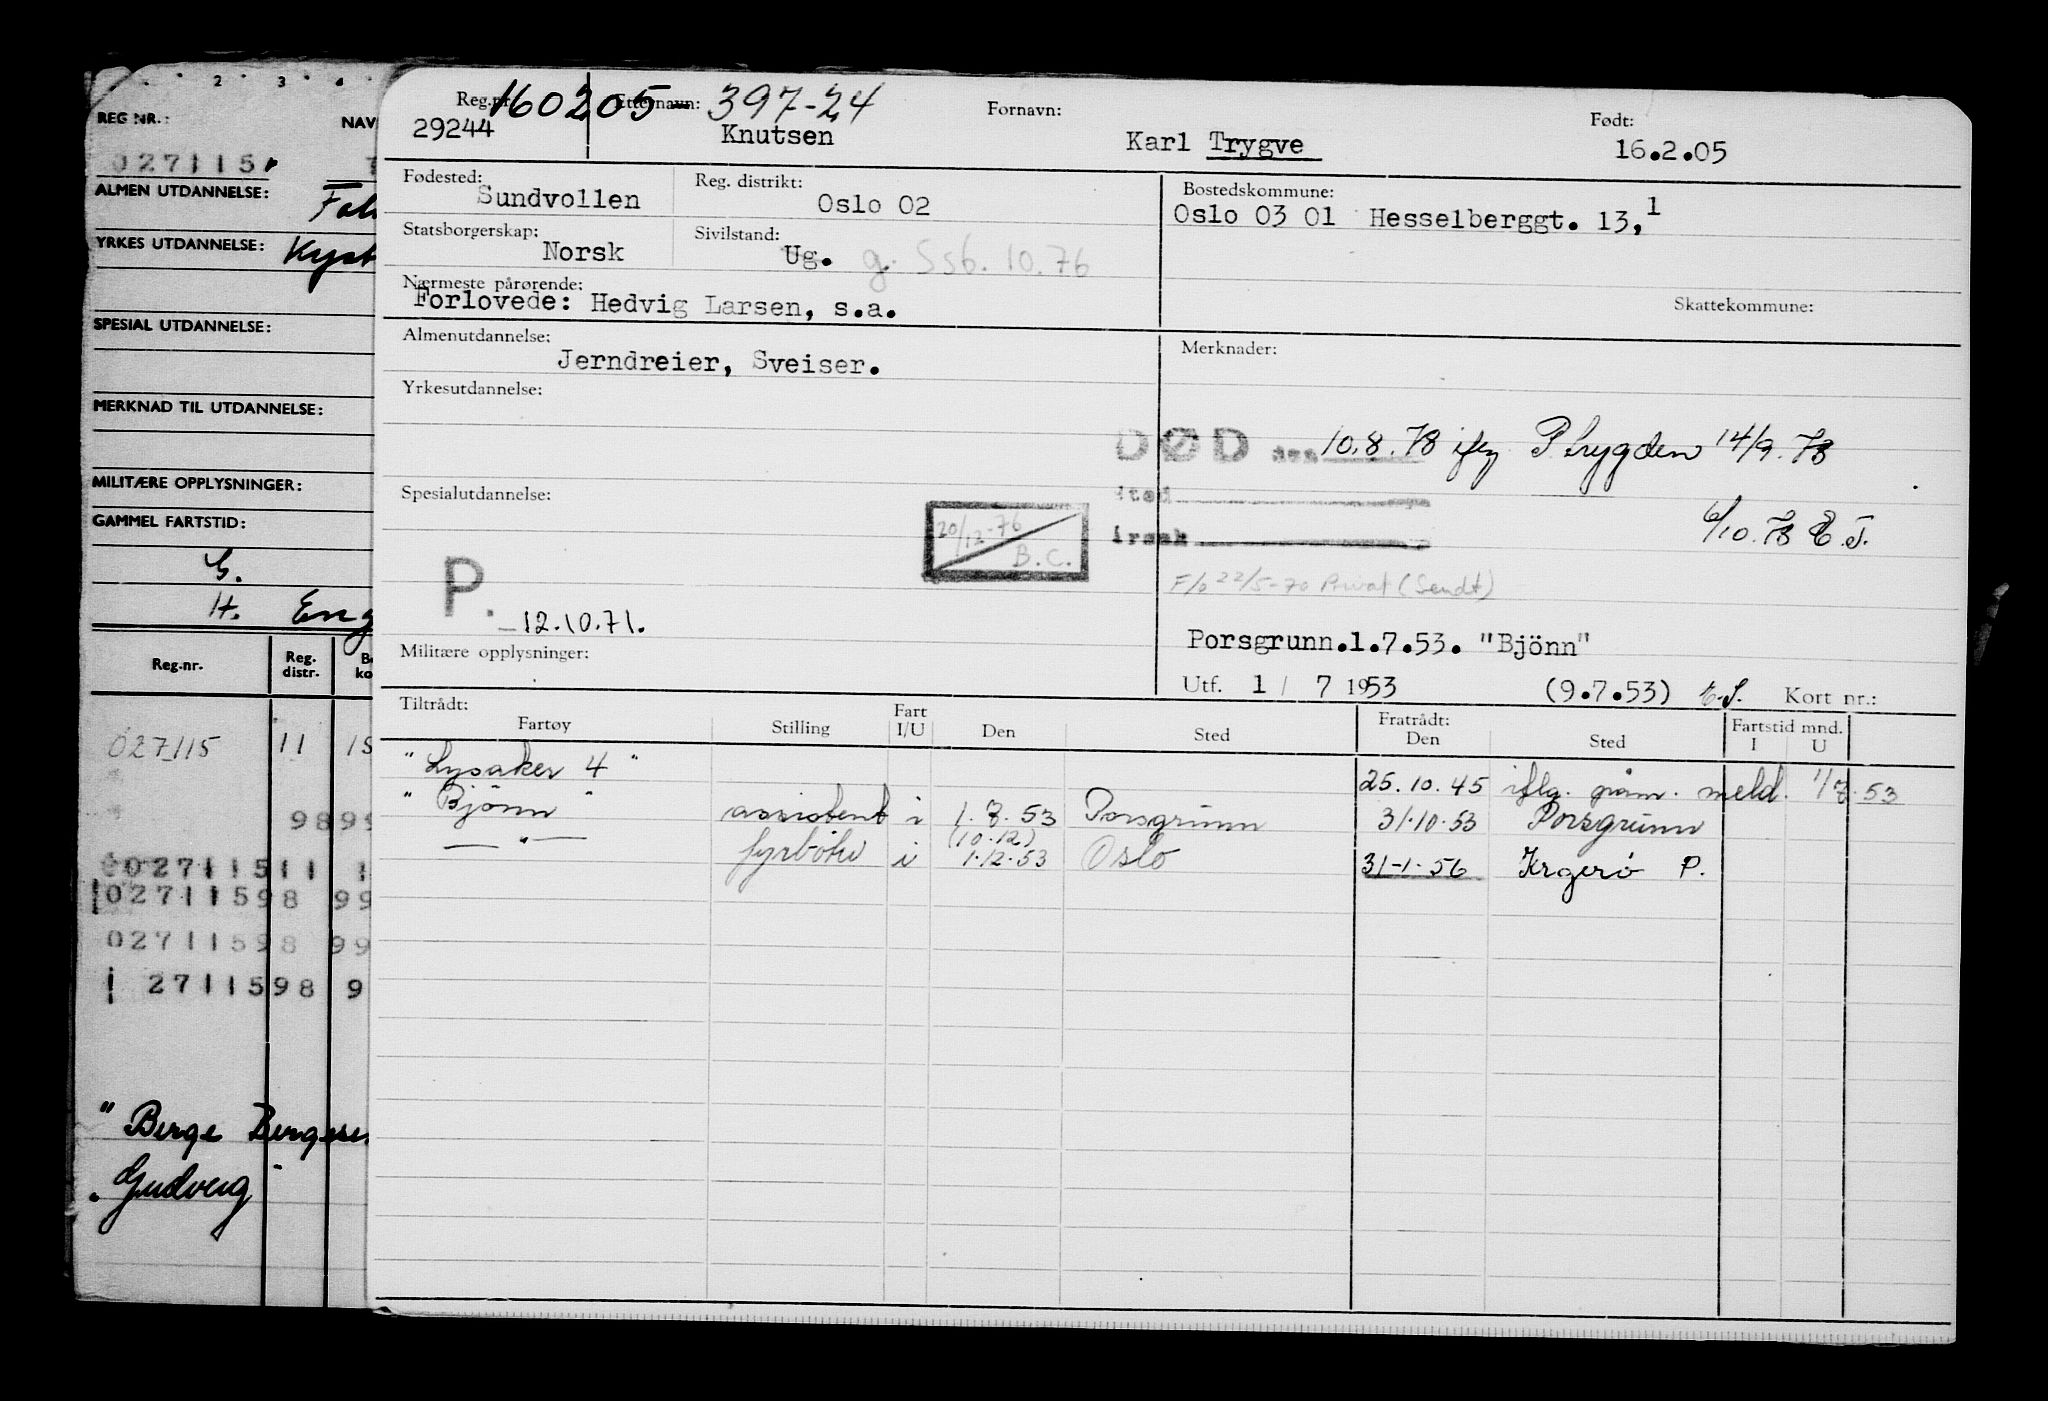 2 3 4
REG NR.: NAV
0271151
ALMEN UTDANNELSE:
YRKES UTDANNELSE: Kyst
SPESIAL UTDANNELSE:
MERKNAD TIL UTDANNELSE:
MILITÆRE OPPLYSNINGER:
GAMMEL FARTSTID:
S.
H. Eng
Reg.nr. Reg. distr. ko
027115 11
98 99
02711511
02711598 99
02711598 99
2711598 9
"Berge Berges
"Gudveig"
Reg.nr. 160205-397-24 Etternavn: Fornavn: Født:
29244 Knutsen Karl Trygve 16.2.05
Fødested: Reg. distrikt: Bostedskommune:
Sundvollen Oslo 02 Oslo 03 01 Hesselberggt. 13,1
Statsborgerskap: Sivilstand:
Norsk Ug. g. Ssb. 10.76
Nærmeste pårørende: Skattekommune:
Forlovede: Hedvig Larsen, s.a.
Almenutdannelse: Merknader:
Jerndreier, Sveiser.
Yrkesutdannelse:
DØD den 10.8.78 iflg P trygden 14/9.78
sted
Spesialutdannelse:
20/12-76 årsak 6/10.78 E.T.
B.C.
F/b 22/5-70 Privat (Sendt)
P. 12.10.71.
Porsgrunn.1.7.53. "Bjönn"
Militære opplysninger:
Utf. 1 / 7 1953 (9.7.53) Kort nr.:
Tiltrådt: Fratrådt: Fartstid mnd.
Fartøy Stilling Fart I/U Den Sted Den Sted I U
"Lysaker 4" 25.10.45 iflg. meld. 1/7.53
"Bjönn" assistent i 1.7.53 Porsgrunn 31.10.53 Porsgrunn
(10.12)
—"— fyrböter i 1.12.53 Oslo 31-1-56 Krgerö P.